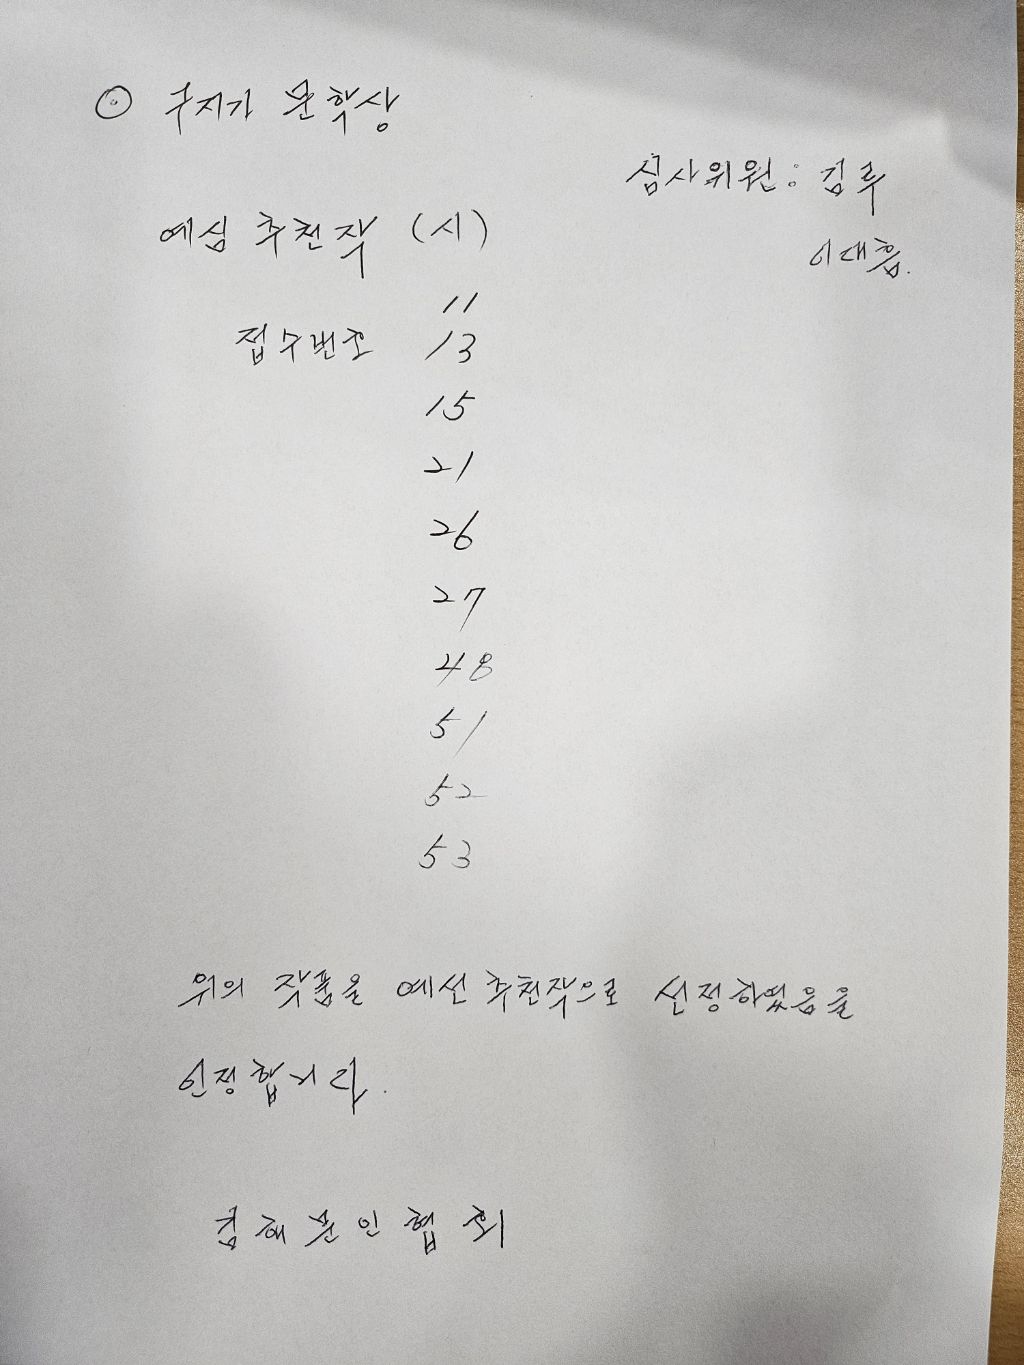 ⊙ 구지가 문학상
심사위원 : 김루
이대흠.
예심 추천작 (시)
11
접수번호 13
15
21
26
27
48
51
52
53
위의 작품을 예선 추천작으로 선정하였음을
인정합니다.
김해문인협회